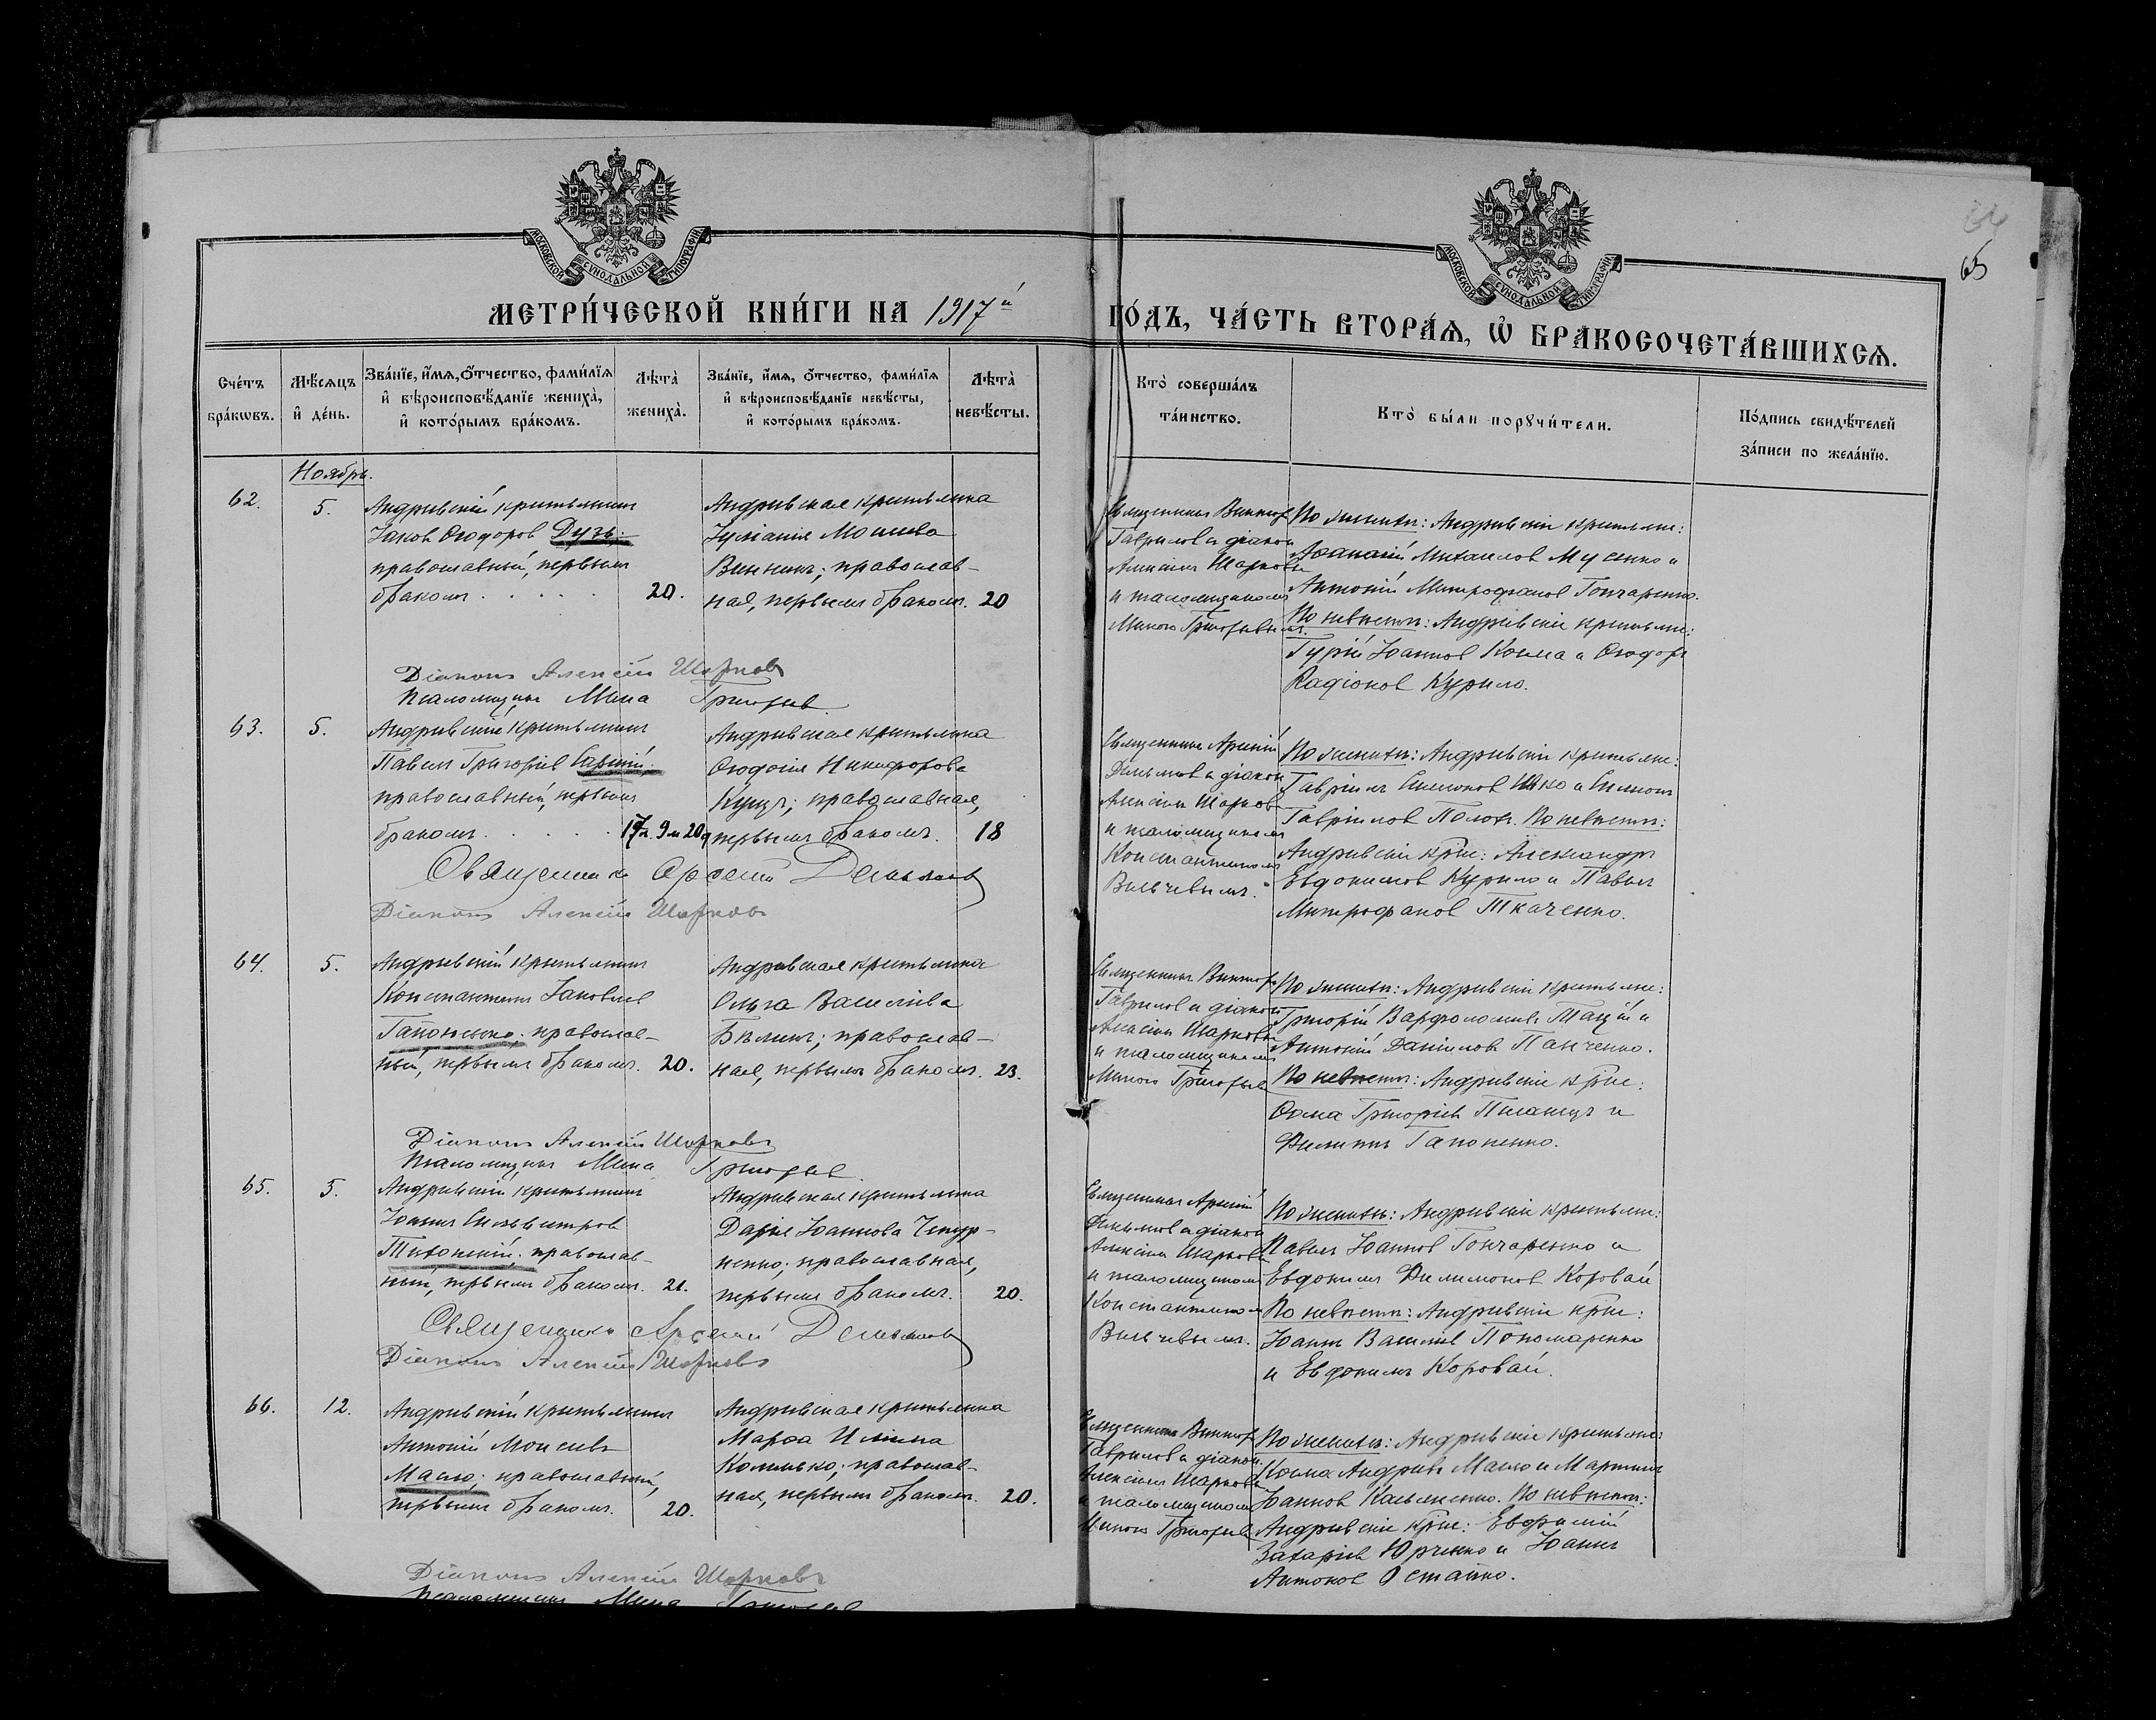 МОСКОВСКОЙ СѴНОДАЛЬНОЙ ТИПОГРАФІИ
МОСКОВСКОЙ СѴНОДАЛЬНОЙ ТИПОГРАФІИ
65
МЕТРИ́ЧЕСКОЙ КНИ́ГИ НА 1917й
ГО́ДЪ, ЧА́СТЬ ВТОРА́Ѧ, Ѽ БРАКОСОЧЕТА́ВШИХСѦ.
Сче́тъ бра́кωвъ.
Мѣ́сяцъ и҆ де́нь.
Зва́нїе, и҆́мѧ, ѻ҆́тчество, фами́лїѧ и҆ вѣроисповѣ́данїе жениха̀, и҆ кото́рымъ бра́комъ.
Лѣта̀ жениха̀.
Зва́нїе, и҆́мѧ, ѻ҆́тчество, фами́лїѧ и҆ вѣроисповѣ́данїе невѣ́сты, и҆ кото́рымъ бра́комъ.
Лѣта̀ невѣ́сты.
Кто̀ соверша́лъ та́инство.
Кто̀ бы́ли порꙋчи́тели.
По́дпись свидѣ́телей за́писи по жела́нїю.
Ноябрь.
62.
5.
Андреевскій крестьянинъ
Іаковъ Ѳеодоровъ Дузь.
православный, первымъ
бракомъ . . . . .
20.
Андреевская крестьянка
Моисеева
православ-
ная, первымъ бракомъ.
20
Священникъ Викторъ
Гавриловъ и діаконъ
Алексій Шарковъ
и псаломщикомъ
Миною Григорьевымъ.
По женихѣ: Андреевскіе крестьяне:
Михаиловъ Мусенко и
Антоній Митрофановъ Гончаренко.
По невѣстѣ: Андреевскіе крестьяне:
Гурій Іоанновъ Косма и Ѳеодоръ
Радіоновъ Курило.
Діаконъ Алексій Шарковъ
Псаломщикъ Мина Григорьевъ
63.
5.
Андреевскій крестьянинъ
Павелъ Григоріевъ
православный, первымъ
бракомъ . . . . .
17л. 9м 20д
Андреевская крестьянка
Ѳеодосія Никифорова
Куцъ; православная,
первымъ бракомъ.
18
Священникъ Арсеній
Демьяновъ и діаконъ
Алексій Шарковъ
и псаломщикомъ
Константиномъ
По женихѣ: Андреевскіе крестьяне:
Гавріилъ Симеоновъ и Симеонъ
Гавріиловъ По невѣстѣ:
Андреевскіе крне: Александръ
Евдокимовъ Курило и Павелъ
Митрофановъ Ткаченко.
Священникъ Арсеній Демьяновъ
Діаконъ Алексій Шарковъ
64.
5.
Андреевскій крестьянинъ
Константинъ Іаковлевъ
Гапоненко; православ-
ный, первымъ бракомъ.
20.
Андреевская крестьянка
Ольга Василіева
Бѣликъ; православ-
ная, первымъ бракомъ.
23.
Священникъ Викторъ
Гавриловъ и діаконъ
Алексій Шарковъ
и псаломщикомъ
Миною Григорьевъ
По женихѣ: Андреевскіе крестьяне:
Григорій Варфоломеевъ и
Антоній Даніиловъ Панченко.
По невѣстѣ: Андреевскіе крне:
Ѳома Григоріевъ и
Филиппъ Гапоненко.
Діаконъ Алексій Шарковъ
Псаломщикъ Мина Григорьевъ
65.
5.
Андреевскій крестьянинъ
Іоаннъ Сильвестровъ
православ-
ный, первымъ бракомъ.
21.
Андреевская крестьянка
Дарья Іоаннова
православная,
первымъ бракомъ.
20.
Священникъ Арсеній
Демьяновъ и діаконъ
Алексій Шарковъ
и псаломщикомъ
Константиномъ
По женихѣ: Андреевскіе крестьяне:
Павелъ Іоанновъ Гончаренко и
Евдокимъ Филимоновъ Коровай
По невѣстѣ: Андреевскіе крне:
Іоаннъ Василіевъ Пономаренко
и Евдокимъ Коровай.
Священникъ Арсеній Демьяновъ
Діаконъ Алексій Шарковъ
66.
12.
Андреевскій крестьянинъ
Антоній Моисеевъ
Масло; православный,
первымъ бракомъ.
20.
Андреевская крестьянка
Марѳа Иліина
православ-
ная, первымъ бракомъ.
20.
Священникъ Викторъ
Гавриловъ и діаконъ
Алексій Шарковъ
и псаломщикомъ
Миною Григорьевъ
По женихѣ: Андреевскіе крестьяне:
Косма Андреевъ Масло и Мартинъ
Іоанновъ По невѣстѣ:
Андреевскіе крне: Евфимій
Захаріевъ Юрченко и Іоаннъ
Антоновъ Остапко.
Діаконъ Алексій Шарковъ
Псаломщикъ Мина Григорьевъ